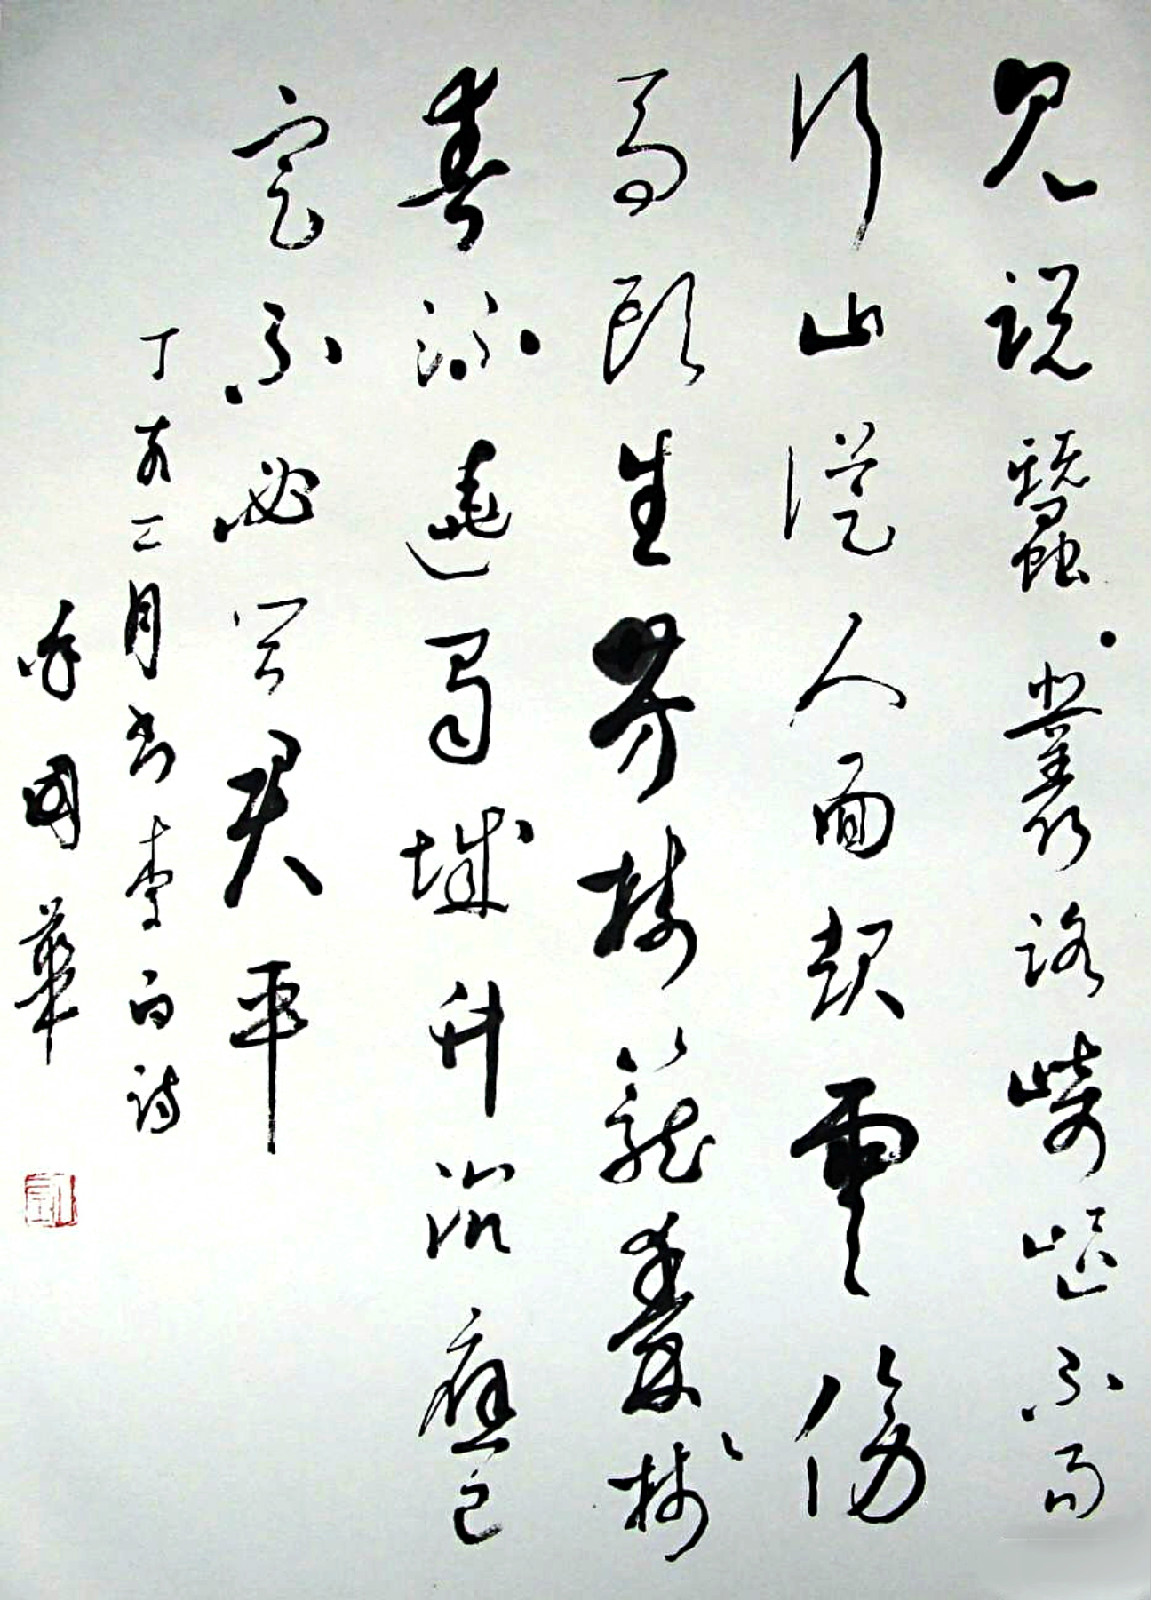 見説蠶叢路崎嶇不易
行山從人面起雲傍
馬頭生芳樹籠秦棧
春流遶蜀城升沉應已
定不必問君平
丁亥二月書李白詩
國華